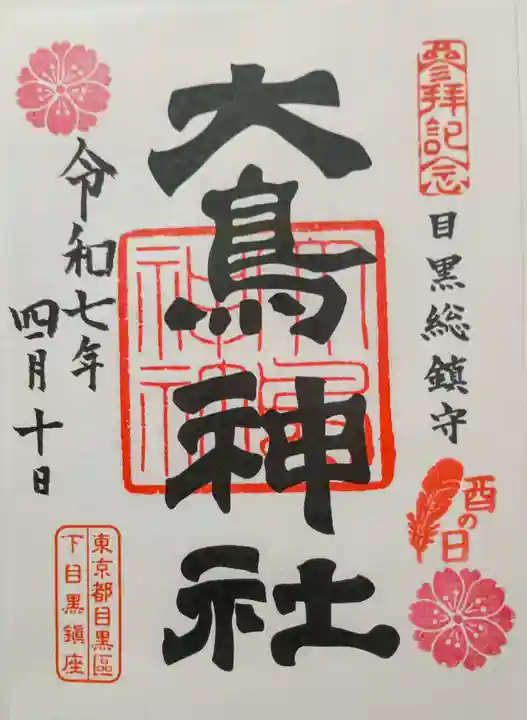 參拜記念
目黒総鎮守
酉の日
大鳥神社
大鳥
神社
令和七年
四月十日
東京都目黒區
下目黒鎮座